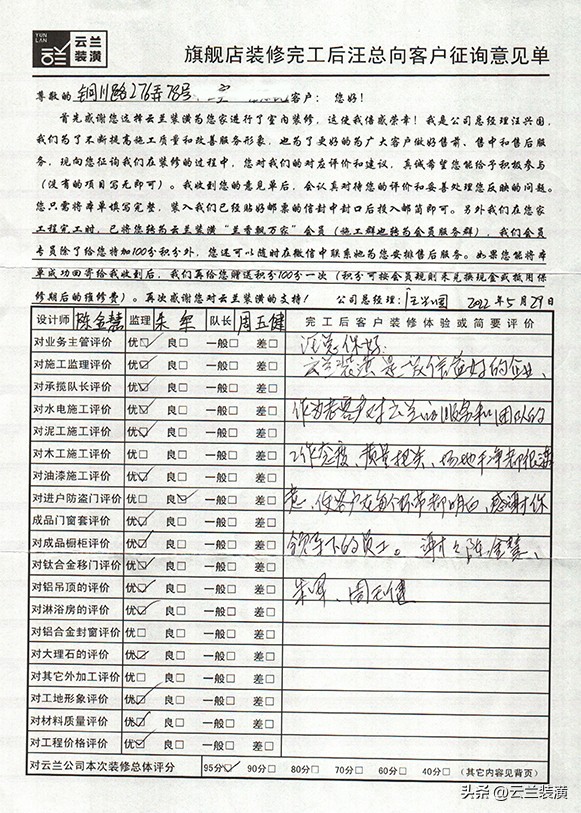 YUN LAN 云兰装潢
旗舰店装修完工后汪总向客户征询意见单
尊敬的 铜川路276弄78号 客户：您好！
首先感谢您选择云兰装潢为您家进行了室内装修，这使我倍感荣幸！我是公司总经理汪兴国，
我们为了不断提高施工质量和改善服务形象，也为了更好的为广大客户做好售前、售中和售后服
务，现向您征询我们在装修的过程中，您对我们的对应评价和建议，真诚希望您能给予积极参与
（没有的项目写无即可）。我收到您的意见单后，会认真对待您的评价和妥善处理您反映的问题。
您只需将本单填写完整，装入我们已经贴好邮票的信封中封口后投入邮筒即可。另外我们在您家
工程完工时，已将您转为云兰装潢“兰香飘万家”会员（施工群也转为会员服务群），我们会员
专员除了给您特加100分积分外，您还可以随时在微信中联系她为您安排售后服务。如果您能将本
单成功回寄给我收到后，我们再给您赠送积分100分一次（积分可按会员规则来兑换现金或抵用保
修期后的维修费）。再次感谢您对云兰装潢的支持！ 公司总经理：汪兴国 2022年5月29日
设计师 陈金慧 监理 朱军 队长 周五健 完工后客户装修体验或简要评价
对业务主管评价 优☑ 良□ 一般□ 差□ 汪总你好：
对施工监理评价 优☑ 良□ 一般□ 差□ 云兰装潢是一家信益好的企业、
对承揽队长评价 优☑ 良□ 一般□ 差□
对水电施工评价 优☑ 良□ 一般□ 差□ 作为老客户对云兰的服务和团队的
对泥工施工评价 优☑ 良□ 一般□ 差□
对木工施工评价 优□ 良□ 一般□ 差□ 工作态度、质量把关、场地干净都很满
对油漆施工评价 优☑ 良□ 一般□ 差□
对进户防盗门评价 优□ 良☑ 一般□ 差□ 意、使客户在每个环节都明白、感谢你
成品门窗套评价 优☑ 良□ 一般□ 差□
对成品橱柜评价 优☑ 良□ 一般□ 差□ 领导下的员工。谢谢陈金慧、
对钛合金移门评价 优☑ 良□ 一般□ 差□
对铝吊顶的评价 优☑ 良□ 一般□ 差□ 朱军、周五健
对淋浴房的评价 优☑ 良□ 一般□ 差□
对铝合金封窗评价 优□ 良□ 一般□ 差□
对大理石的评价 优☑ 良□ 一般□ 差□
对其它外加工评价 优□ 良□ 一般□ 差□
对工地形象评价 优☑ 良□ 一般□ 差□
对材料质量评价 优☑ 良□ 一般□ 差□
对工程价格评价 优☑ 良□ 一般□ 差□
对云兰公司本次装修总体评分 95分☑ 90分□ 80分□ 70分□ 60分□ 40分□ （其它内容见背页）
头条 @云兰装潢